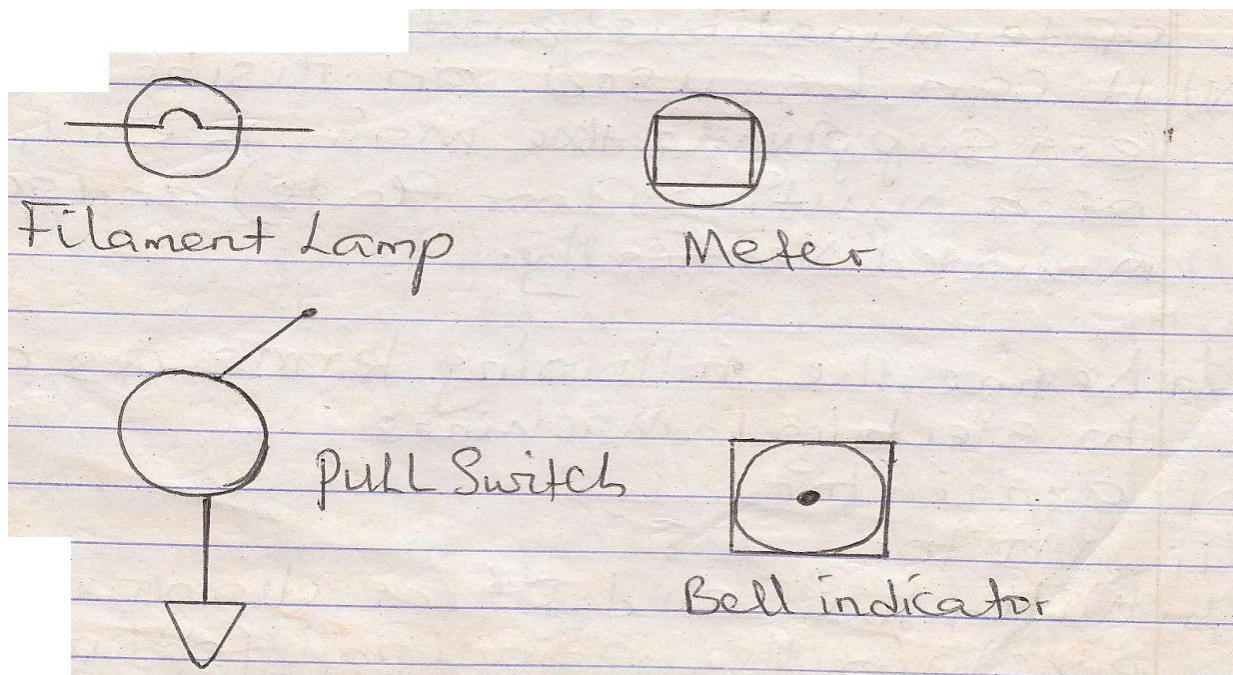 Filament Lamp
Meter
PULL Switch
Bell indicator